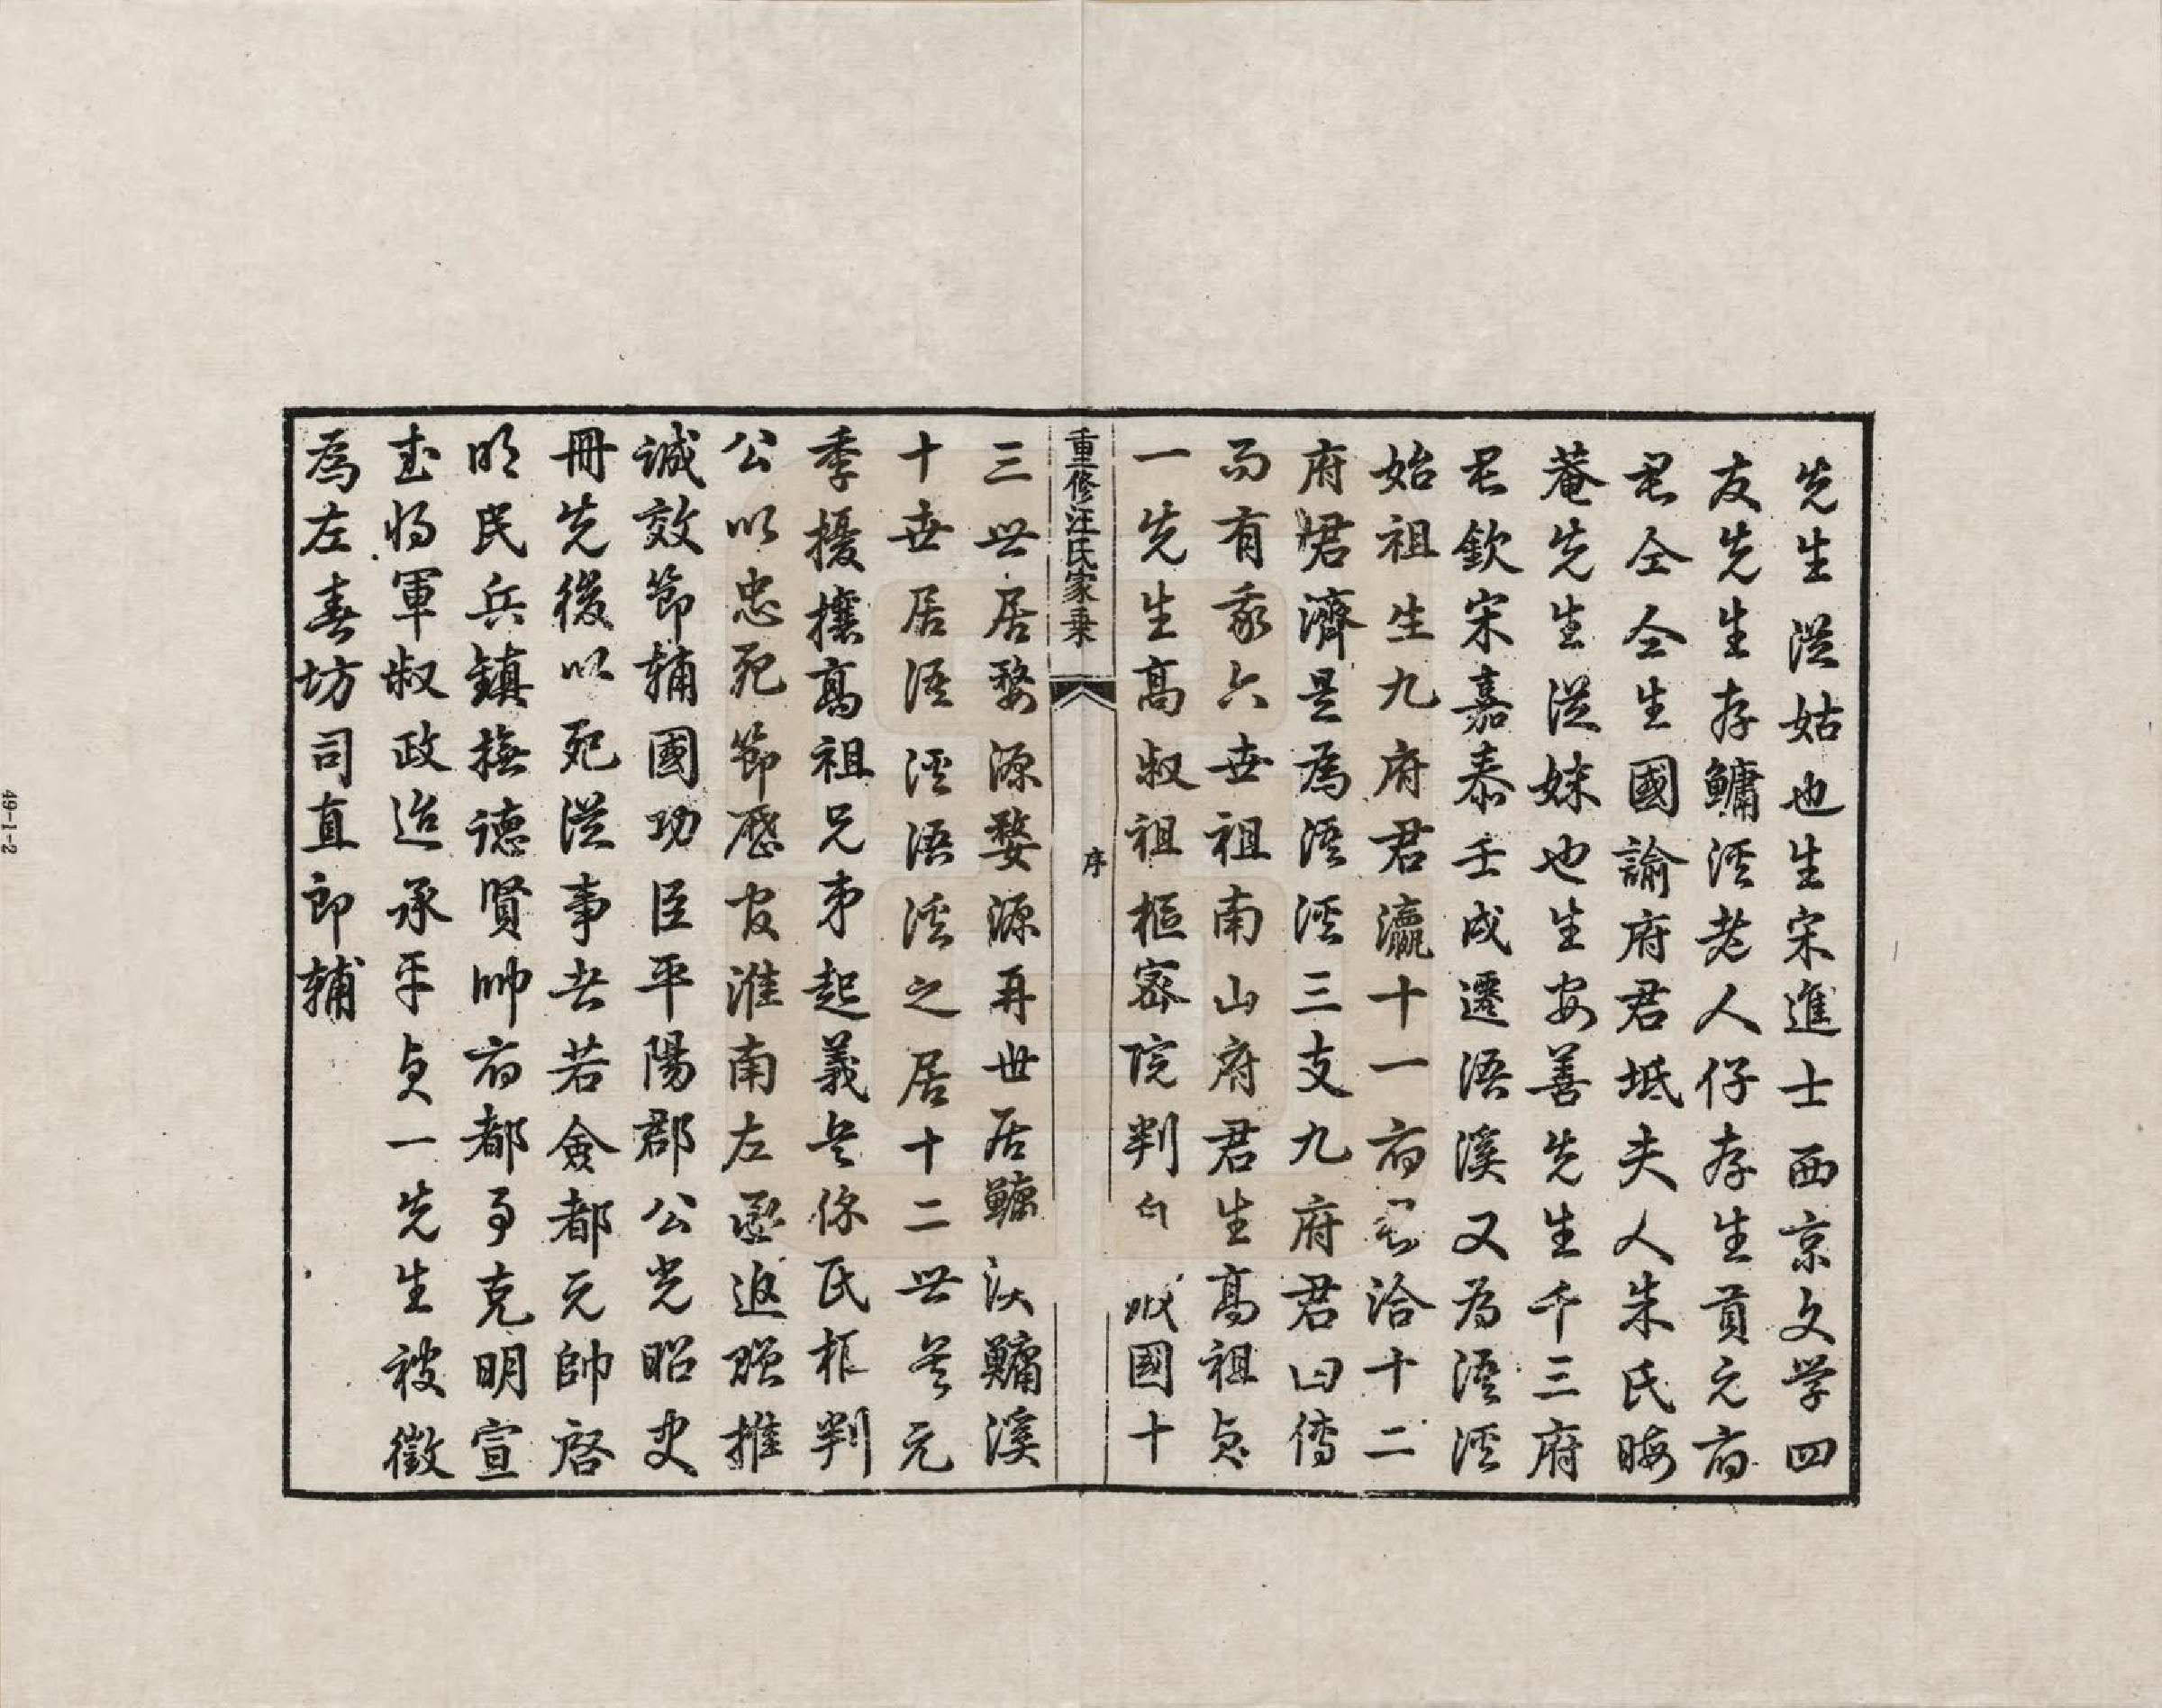 先生從姑也生宋進士西京文学四
友先生存鱅溪老人仔存生貢元府
君仝仝生國諭府君坻夫人朱氏晦
菴先生從妹也生安善先生千三府
君欽宋嘉泰壬戌遷浯溪又為浯溪
始祖生九府君瀛十一府君洽十二
府君濟是為浯溪三支九府君曰傳
而有我六世祖南山府君生高祖貞
一先生高叔祖樞密院判同國十
重修汪氏家乘
序
三世居婺源婺源再世居鱅溪鱅溪
十世居浯溪浯溪之居十二世矣元
季擾攘高祖兄弟起義兵保民樞判
公以忠死節歷官淮南左丞追贈推
誠效節輔國功臣平陽郡公光昭史
冊先後以死從事者若僉都元帥啓
明民兵鎮撫德賢帥府都事克明宣
武將軍叔政迨承平貞一先生被徵
為左春坊司直郎輔
49-1-2